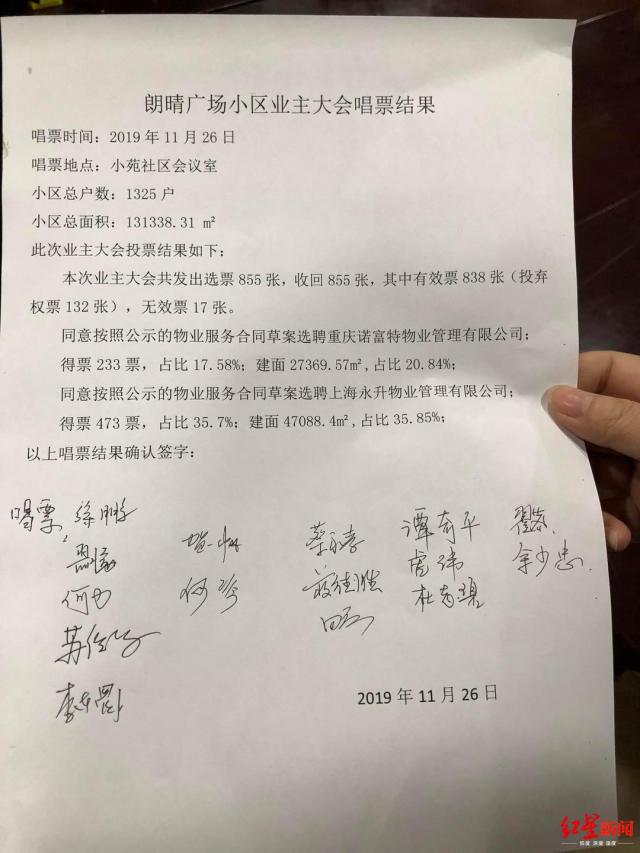 朗晴广场小区业主大会唱票结果
唱票时间：2019 年 11 月 26 日
唱票地点：小苑社区会议室
小区总户数：1325 户
小区总面积：131338.31 ㎡
此次业主大会投票结果如下：
本次业主大会共发出选票 855 张，收回 855 张，其中有效票 838 张（投弃
权票 132 张），无效票 17 张。
同意按照公示的物业服务合同草案选聘重庆诺富特物业管理有限公司；
得票 233 票，占比 17.58%；建面 27369.57㎡,占比 20.84%；
同意按照公示的物业服务合同草案选聘上海永升物业管理有限公司；
得票 473 票，占比 35.7%；建面 47088.4㎡,占比 35.85%；
以上唱票结果确认签字：
唱票 谭奇平
余少忠
何力
2019 年 11 月 26 日
红星新闻
锐度 深度 温度